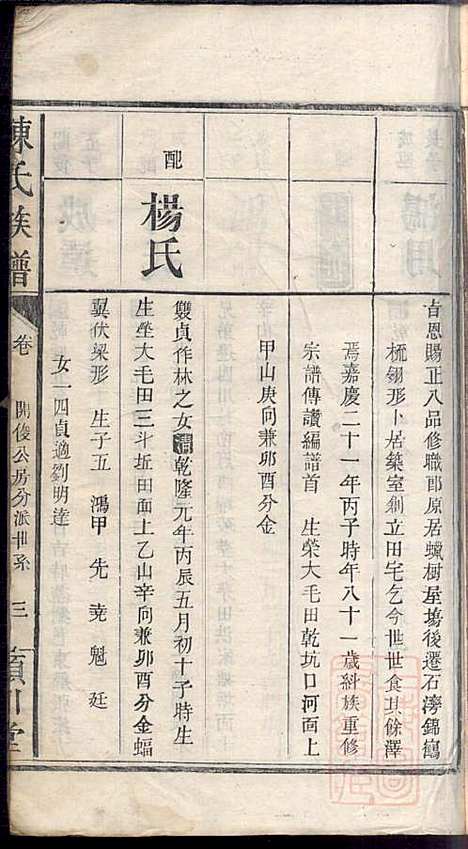 旨恩賜正八品修職郎原居蠟樹屋場後遷石澷錦鷄
梳翎形卜居築室創立田宅乞今世世食其餘澤
焉嘉慶二十一年丙子時年八十一歲糾族重修
宗譜傳讚編譜首 生塋大毛田乾坑口河面上
甲山庚向兼卯酉分金
配 楊氏
雙貞作林之女清乾隆元年丙辰五月初十子時生
生坐大毛田三斗坵田面上乙山辛向兼卯酉分金蝠
翼伏梁形 生子五 鴻甲 先 堯 魁 廷
女一四貞適劉明達
陳氏族譜 卷 開俊公房分派世系 三 潁川堂